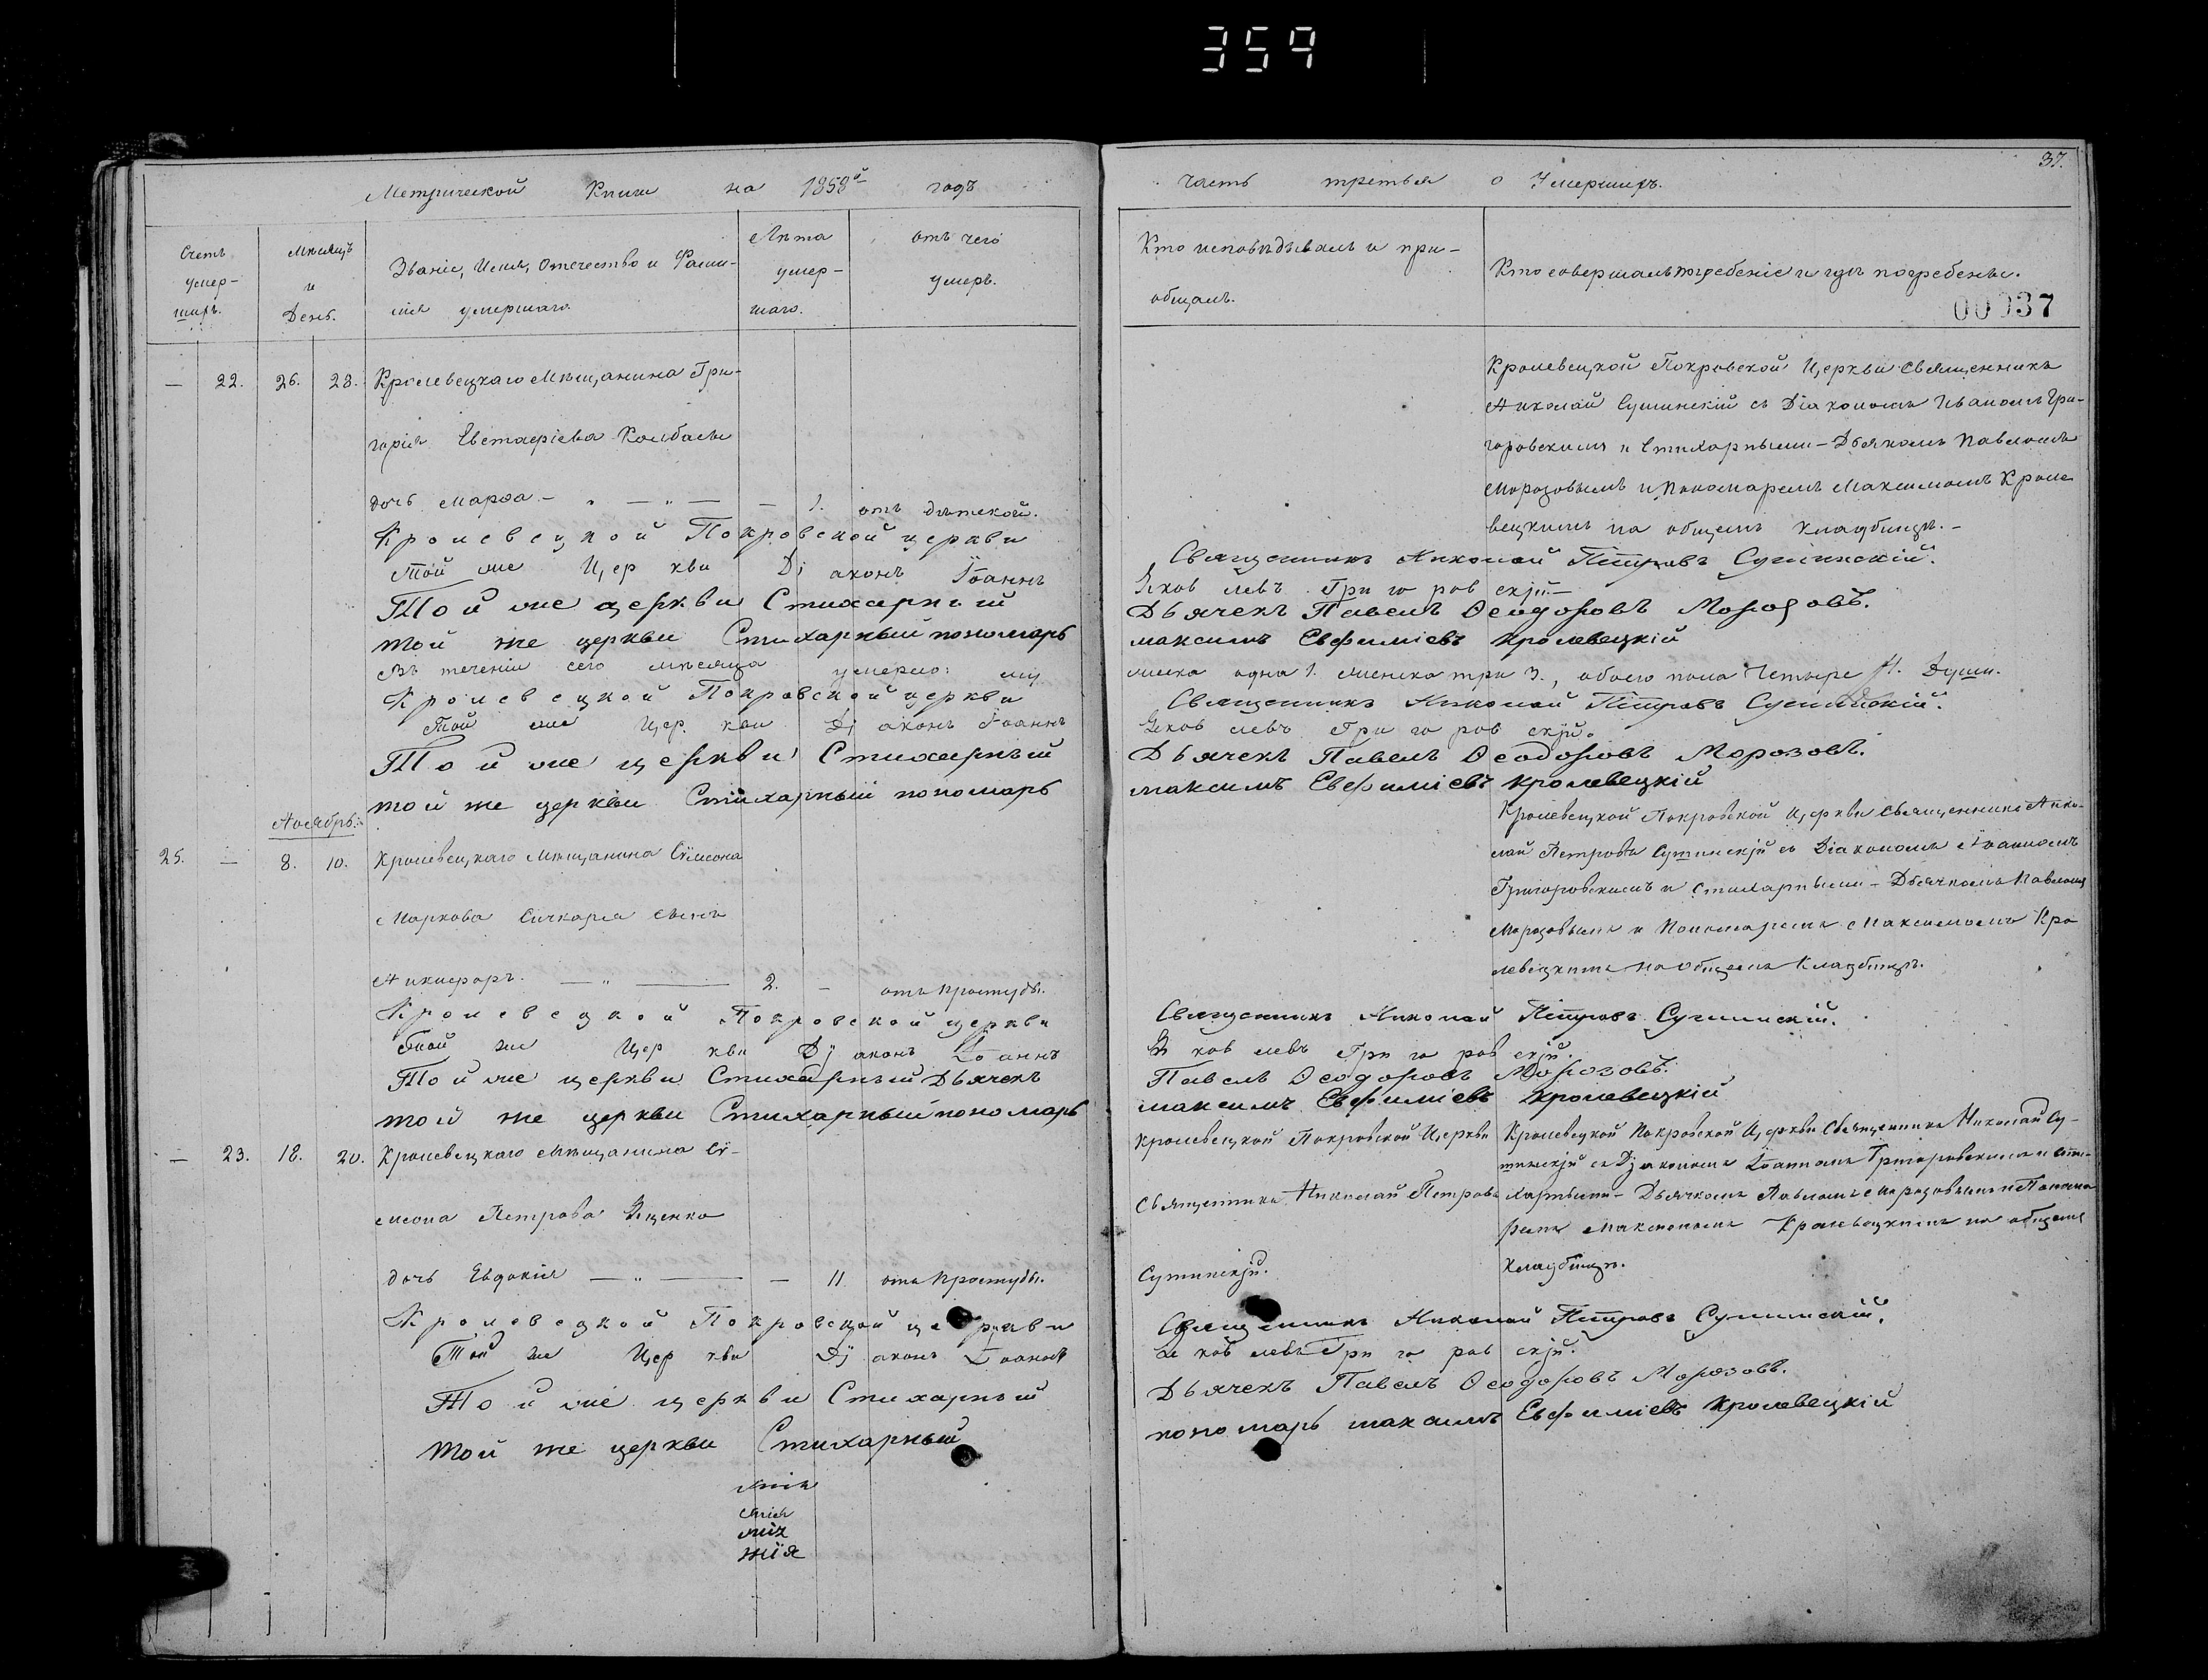 359
Метрической Книги на 1858й годъ
Счетъ умер-шихъ.
Мѣсяцъ и День.
Званіе, Имя, Отчество и Фами-
лія умершаго.
Лѣта умер-шаго.
отъ чего умеръ.
— 22. 26. 28. Кролевецкаго Мѣщанина Гри-
горія Евстафіева
дочь Марѳа — „ — „ — — 1. отъ дѣтской.
Кролевецкой Покровской церкви
Той же Церкви Діаконъ Іоаннъ
Той же церкви Стихарный
той же церкви Стихарный пономарь
Въ теченіи сего мѣсяца умерло: му
Кролевецкой Покровской церкви
Той же Церкви Діаконъ Іоаннъ
Той же церкви Стихарный
той же церкви Стихарный пономарь
Ноябрь.
25. — 8. 10. Кролевецкаго Мѣщанина Сѵмеона
Маркова Сичкаря сынъ
Никифоръ. — „ — 2. — отъ простуды.
Кролевецкой Покровской церкви
Той же Церкви Діаконъ Іоаннъ
Той же церкви Стихарный Дьячекъ
той же церкви Стихарный пономарь
— 23. 18. 20. Кролевецкаго Мѣщанина Сѵ-
меона Петрова Яценка
дочь Евдокія — „ — — 11 отъ простуды.
Кролевецкой Покровской церкви
Той же Церкви Діаконъ Іоаннъ
Той же церкви Стихарный
той же церкви Стихарный
лнія
жія
37.
Часть третья о Умершихъ.
Кто исповѣдывалъ и при-
общалъ.
Кто совершалъ погребеніе и гдѣ погребены.
00037
Кролевецкой Покровской Церкви Священникъ
Николай Сушинскій съ Діакономъ Иваномъ Гри-
горовскимъ и Стихарными — Дьячкомъ Павломъ
Морозовымъ и Пономаремъ Максимомъ Кроле
вецкимъ на общемъ кладбищѣ. —
Священникъ Николай Петровъ Сушинскій.
Яковлевъ Григоровскій. —
Дьячекъ Павелъ Ѳеодоровъ Морозовъ.
максимъ Евфиміевъ кролевецкій
жска одна 1. женска три 3., обоего пола Четыре 4. Души.
Священникъ Николай Петровъ Сушинскій.
Яковлевъ Григоровскій.
Дьячекъ Павелъ Ѳеодоровъ Морозовъ.
максимъ Евфиміевъ кролевецкій
Кролевецкой Покровской Церкви Священникъ Нико-
лай Петровъ Сушинскій съ Діакономъ Іоанномъ
Григоровскимъ и Стихарными — Дьячкомъ Павломъ
Морозовымъ и Пономаремъ Максимомъ Кро
левецкимъ на общемъ Кладбищѣ.
Священникъ Николай Петровъ Сушинскій.
Яковлевъ Григоровскій.
Павелъ Ѳеодоровъ Морозовъ.
максимъ Евфиміевъ кролевецкій
Кролевецкой Покровской Церкви
Священникъ Николай Петровъ
Сушинскій.
Кролевецкой Покровской Церкви Священникъ Николай Су-
шинскій съ Діакономъ Іоанномъ Григоровскимъ и Сти-
харными — Дьячкомъ Павломъ Морозовымъ и Понома
ремъ Максимомъ Кролевецкимъ на общемъ
кладбищѣ.
Священникъ Николай Петровъ Сушинскій.
Яковлевъ Григоровскій.
Дьячекъ Павелъ Ѳеодоровъ Морозовъ.
пономарь максимъ Евфиміевъ кролевецкій